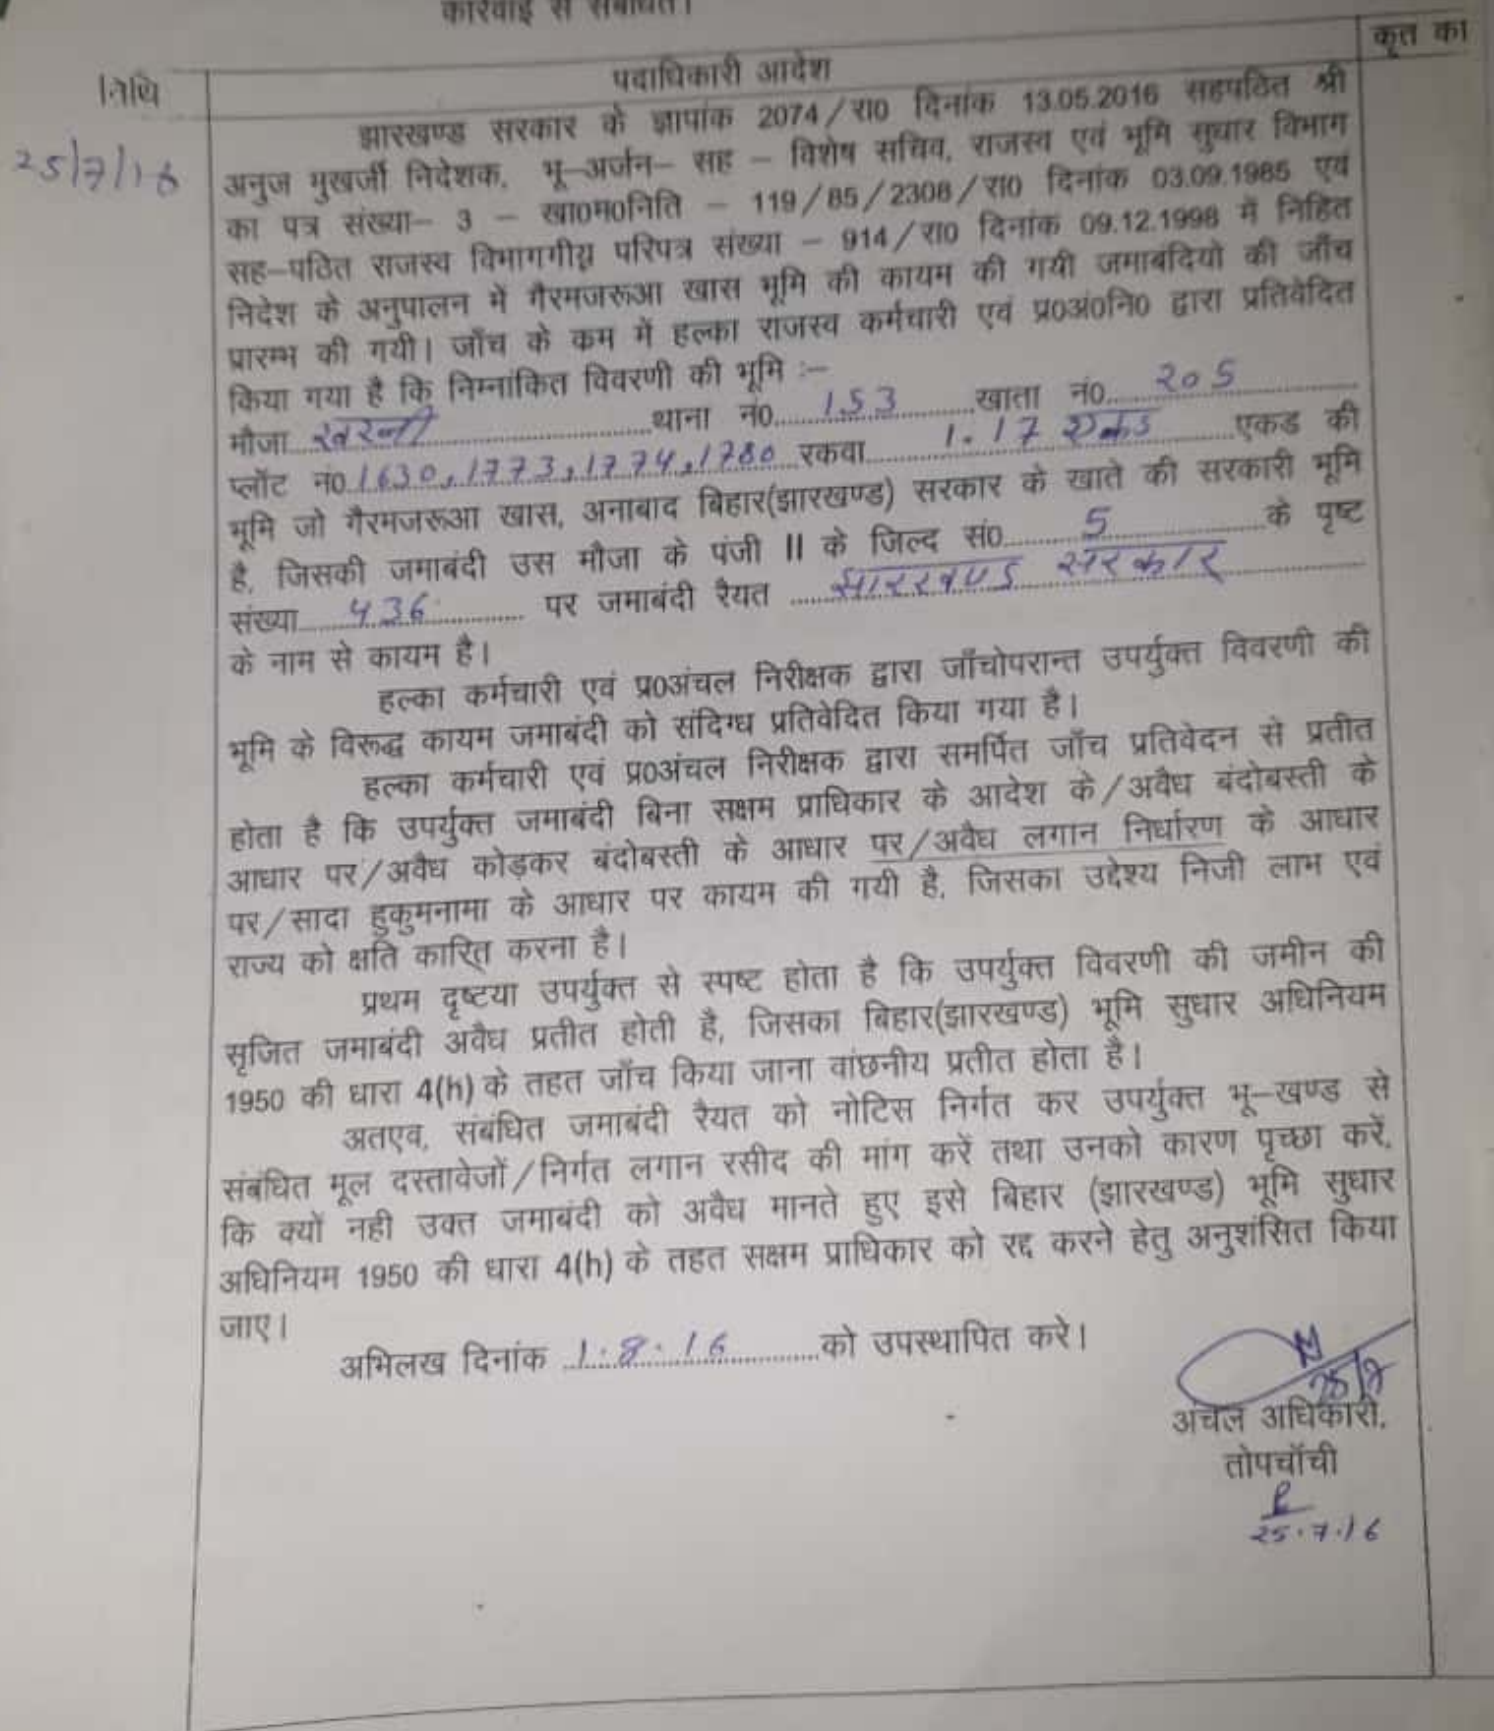 कारवाई से संबंधित।
कृत का
तिथि
पदाधिकारी आदेश
25/7/16
झारखण्ड सरकार के ज्ञापांक 2074/रा0 दिनांक 13.05.2016 सहपठित श्री
अनुज मुखर्जी निदेशक, भू–अर्जन– सह – विशेष सचिव, राजस्व एवं भूमि सुधार विभाग
का पत्र संख्या– 3 – खा0म0निति – 119/85/2308/रा0 दिनांक 03.09.1985 एवं
सह–पठित राजस्व विभागगीय परिपत्र संख्या – 914/रा0 दिनांक 09.12.1998 में निहित
निदेश के अनुपालन में गैरमजरूआ खास भूमि की कायम की गयी जमाबंदियो की जाँच
प्रारम्भ की गयी। जाँच के कम में हल्का राजस्व कर्मचारी एवं प्र0अं0नि0 द्वारा प्रतिवेदित
किया गया है कि निम्नांकित विवरणी की भूमि :–
मौजा खरनी थाना नं0 153 खाता नं0 205
प्लॉट नं0 1630, 1773, 1774, 1780 रकवा 1.17 एकड एकड की
भूमि जो गैरमजरूआ खास, अनाबाद बिहार(झारखण्ड) सरकार के खाते की सरकारी भूमि
है, जिसकी जमाबंदी उस मौजा के पंजी II के जिल्द सं0 5 के पृष्ट
संख्या 436 पर जमाबंदी रैयत झारखण्ड सरकार
के नाम से कायम है।
हल्का कर्मचारी एवं प्र0अंचल निरीक्षक द्वारा जाँचोपरान्त उपर्युक्त विवरणी की
भूमि के विरूद्ध कायम जमाबंदी को संदिग्ध प्रतिवेदित किया गया है।
हल्का कर्मचारी एवं प्र0अंचल निरीक्षक द्वारा समर्पित जाँच प्रतिवेदन से प्रतीत
होता है कि उपर्युक्त जमाबंदी बिना सक्षम प्राधिकार के आदेश के/अवैध बंदोबस्ती के
आधार पर/अवैध कोड़कर बंदोबस्ती के आधार पर/अवैध लगान निर्धारण के आधार
पर/सादा हुकुमनामा के आधार पर कायम की गयी है, जिसका उद्देश्य निजी लाभ एवं
राज्य को क्षति कारित् करना है।
प्रथम दृष्टया उपर्युक्त से स्पष्ट होता है कि उपर्युक्त विवरणी की जमीन की
सृजित जमाबंदी अवैध प्रतीत होती है, जिसका बिहार(झारखण्ड) भूमि सुधार अधिनियम
1950 की धारा 4(h) के तहत जाँच किया जाना वांछनीय प्रतीत होता है।
अतएव, संबंधित जमाबंदी रैयत को नोटिस निर्गत कर उपर्युक्त भू–खण्ड से
संबंधित मूल दस्तावेजों/निर्गत लगान रसीद की मांग करें तथा उनको कारण पृच्छा करें,
कि क्यों नही उक्त जमाबंदी को अवैध मानते हुए इसे बिहार (झारखण्ड) भूमि सुधार
अधिनियम 1950 की धारा 4(h) के तहत सक्षम प्राधिकार को रद्द करने हेतु अनुशंसित किया
जाए।
अभिलख दिनांक 1.8.16 को उपस्थापित करे।
25/7
अंचल अधिकारी,
तोपचाँची
25.7.16